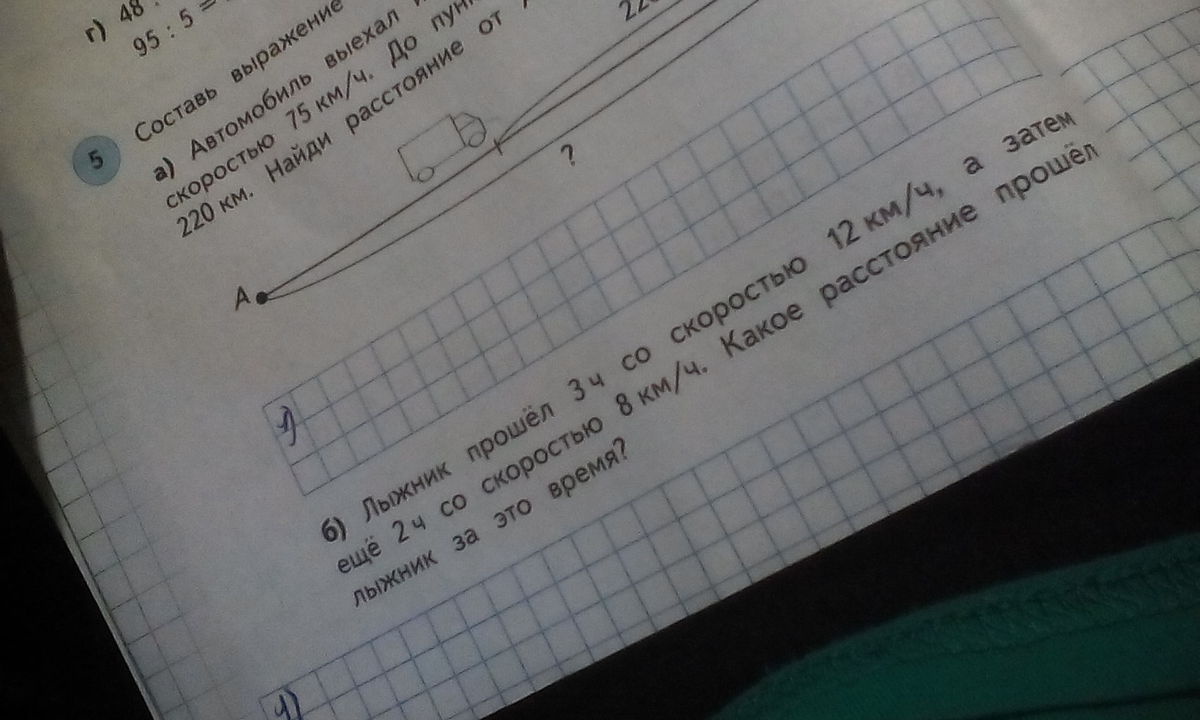 г) 48 :
95 : 5 =
5
Составь выражение
а) Автомобиль выехал
скоростью 75 км/ч. До
220 км. Найди расстояние от
220
?
А
1)
б) Лыжник прошёл 3 ч со скоростью 12 км/ч, а затем
ещё 2 ч со скоростью 8 км/ч. Какое расстояние прошёл
лыжник за это время?
1)